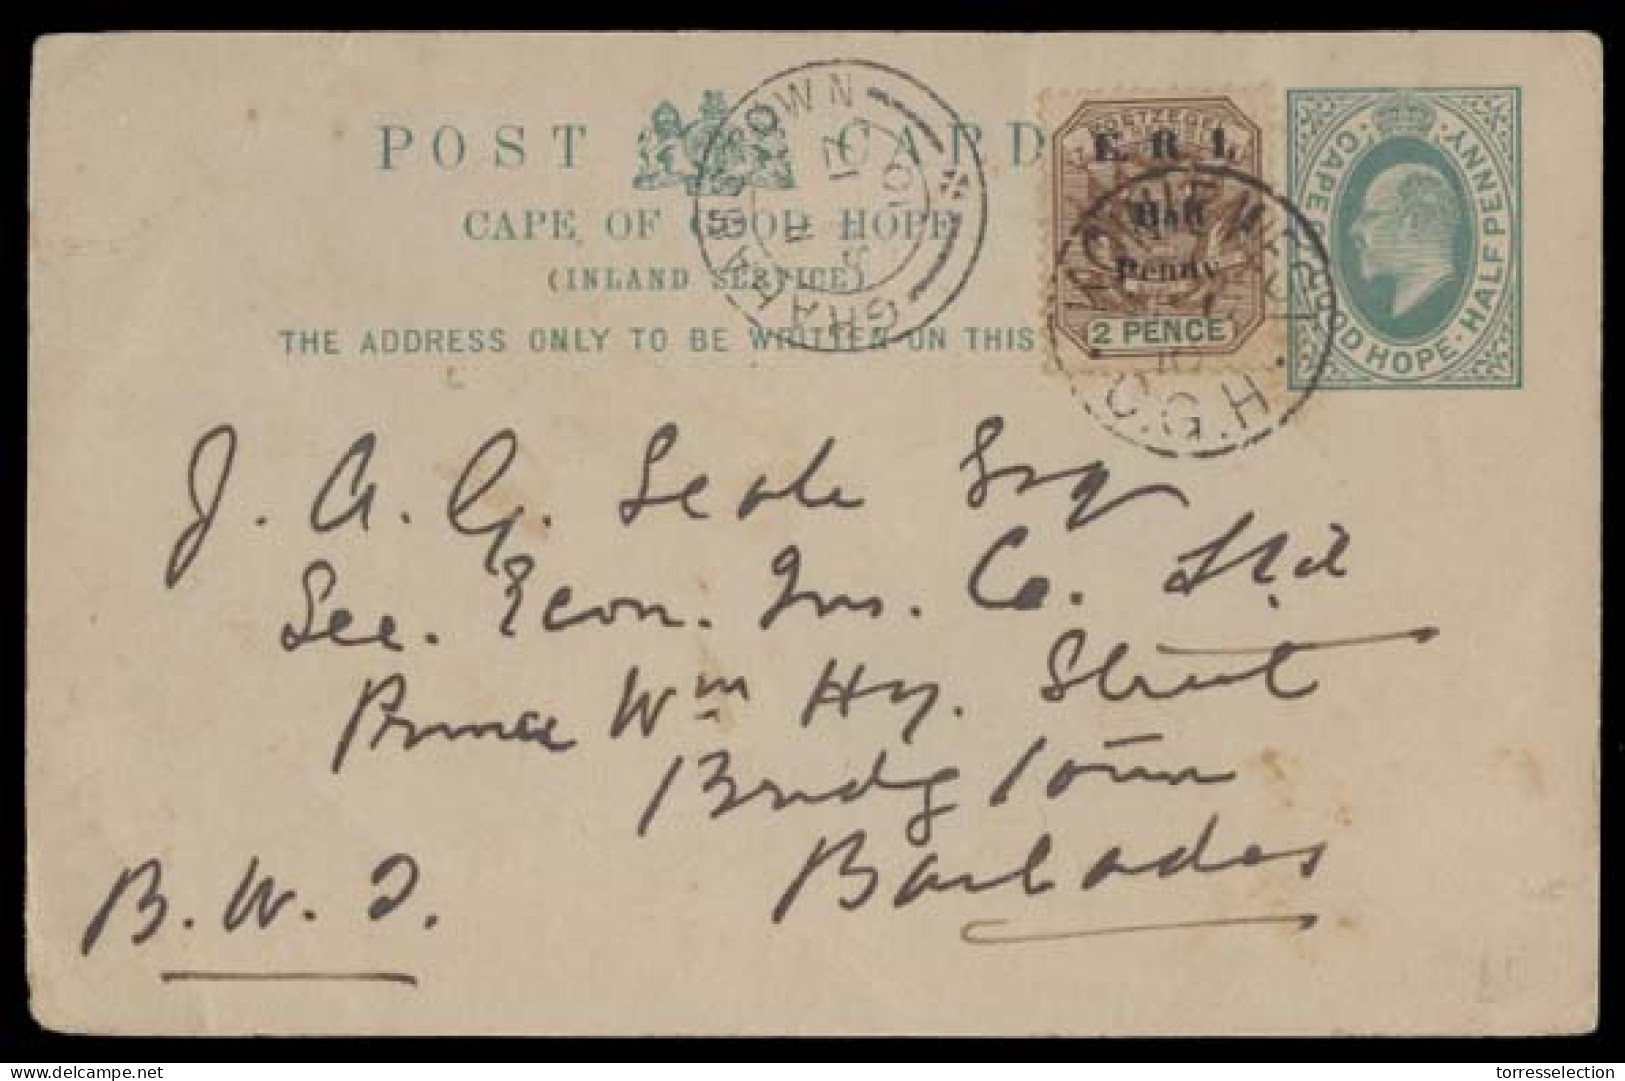 POST CARD
CAPE OF GOOD HOPE
(INLAND SERVICE)
THE ADDRESS ONLY TO BE WRITTEN ON THIS
GRAHAMSTOWN
POSTZEGEL
E. R. I.
Half
Penny
2 PENCE
C.G.H.
CAPE OF GOOD HOPE · HALF PENNY ·
J. A. G. Seale Esq
Sec. Econ. Ins. Co. Ltd
Prince Wm Hy. Street
Bridgetown
Barbados
B. W. I.
www.delcampe.net
torresselection